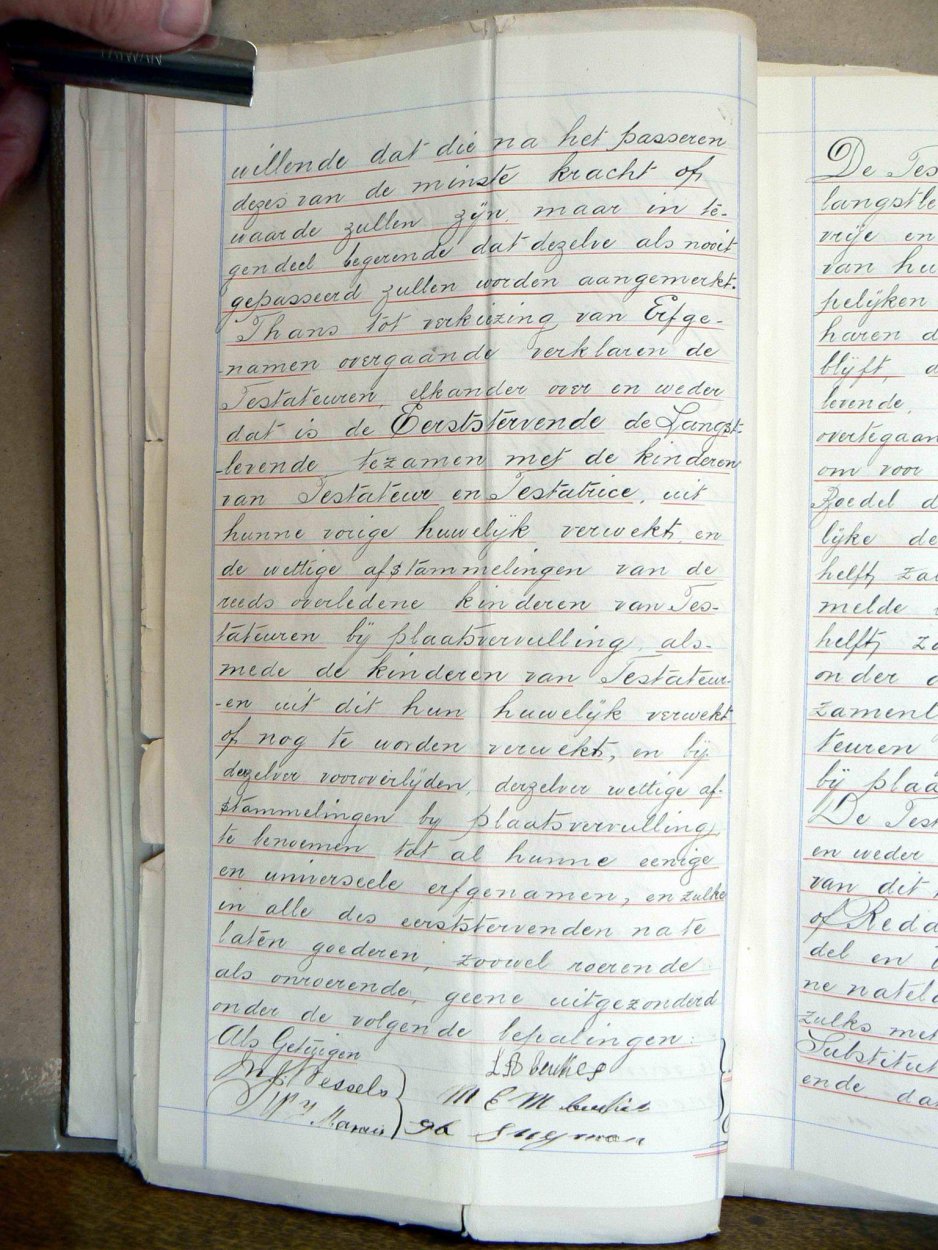 willende dat die na het passeren
dezes van de minste kracht of
waarde zullen zijn, maar in te-
gendeel begerende dat dezelve als nooit
gepasseerd zullen worden aangemerkt.
Thans tot verkiezing van Erfge-
-namen overgaande verklaren de
Testateuren, elkander over en weder
dat is de Eerststervende de Langst-
-levende tezamen met de kinderen
van Testateur en Testatrice, uit
hunne vorige huwelijk verwekt, en
de wettige afstammelingen van de
reeds overledene kinderen van Tes-
tateuren bij plaatsvervulling, als-
mede de kinderen van Testateur-
-en uit dit hun huwelijk verwekt
of nog te worden verwekt, en bij
dezelver vooroverlijden, derzelver wettige af-
stammelingen by plaatsvervulling,
te benoemen tot al hunne eenige
en universeele erfgenamen, en zulks
in alle des eerststervenden na te
laten goederen, zoowel roerende
als onroerende, geene uitgezonderd
onder de volgende bepalingen:
Als Getuigen
Wessels
Marais
M E M
De Tes
langstle
vrije en
van hu
pelijken
haren d
blijft, a
levende,
overtegaan
om voor
Boedel d
lijke de
helft za
melde
helft za
onder
zamenl
teuren
bij plaa
De Test
en weder
van dit
of Reda
del en
ne natela
zulks met
Substitut
ende, da